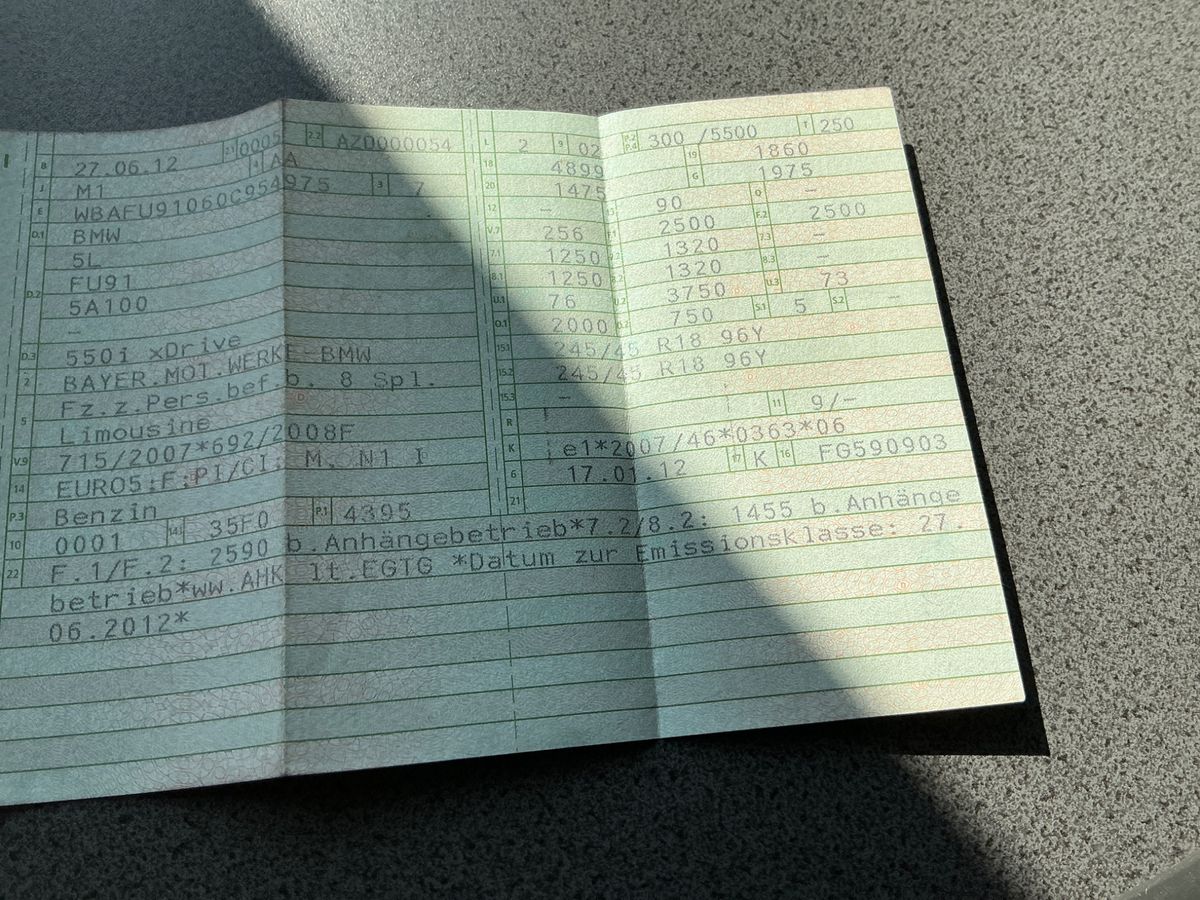 B 27.06.12 2.1 0005 2.2 AZD000054 L 2 9 02 P.2 P.4 300 /5500 T 250
J M1 4 AA 18 4899 19 1860
E WBAFU91060C954975 3 7 20 1475 G 1975
D.1 BMW 12 – 13 90 Q –
D.2 5L V.7 256 F.1 2500 F.2 2500
FU91 7.1 1250 7.2 1320 7.3 –
5A100 8.1 1250 8.2 1320 8.3 –
– U.1 76 U.2 3750 U.3 73
D.3 550i xDrive O.1 2000 O.2 750 S.1 5 S.2 –
2 BAYER.MOT.WERKE-BMW 15.1 245/45 R18 96Y
5 Fz.z.Pers.bef.b. 8 Spl. 15.2 245/45 R18 96Y
Limousine 15.3 –
V.9 715/2007*692/2008F R 11 9/–
14 EURO5;F;PI/CI; M, N1 I K e1*2007/46*0363*06
P.3 Benzin P.1 4395 6 17.01.12 17 K 16 FG590903
10 0001 14.1 35F0 21
22 F.1/F.2: 2590 b.Anhängebetrieb*7.2/8.2: 1455 b.Anhänge
betrieb*ww.AHK lt.EGTG *Datum zur Emissionsklasse: 27.
06.2012*